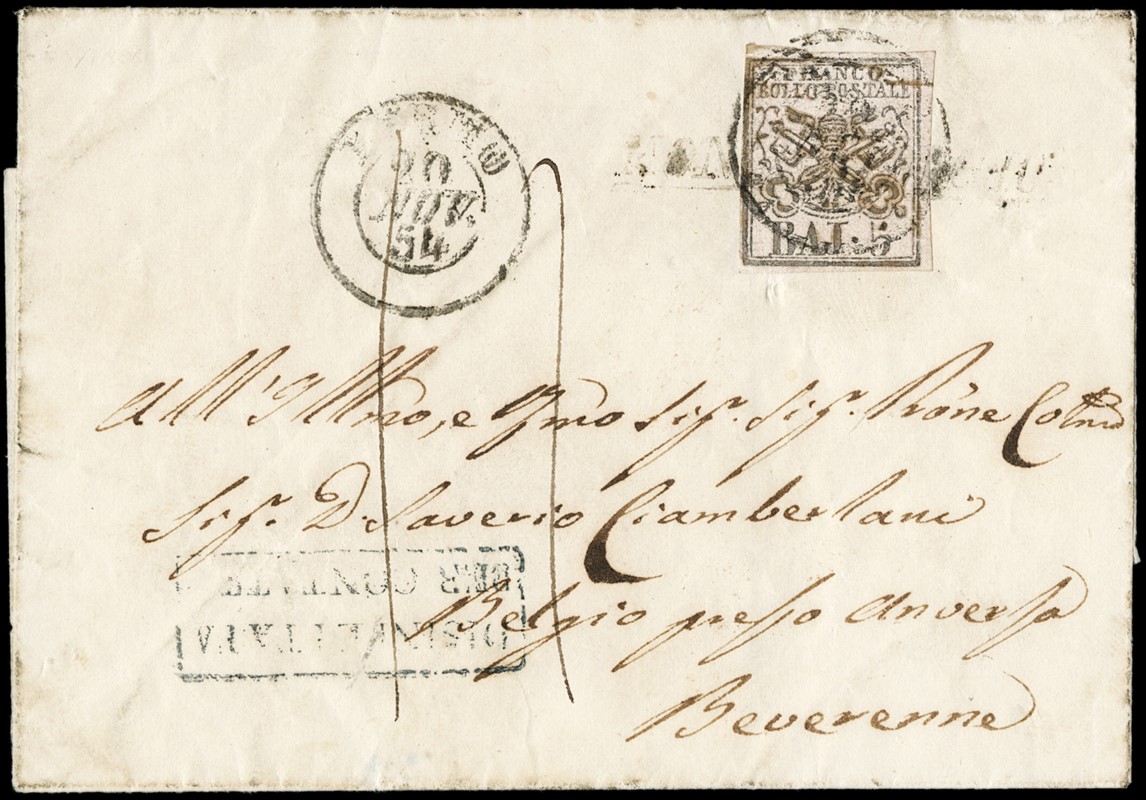 FRANCO
BOLLO POSTALE
BAJ. 5
20
NOV.
54
All'Illmo, e Qmo Sig. Sig. Prone Colmo
Sig. D. Saverio Ciamberlani
Belgio presso Anversa
Beverenne
PER CONTATT
DISINFETTATA